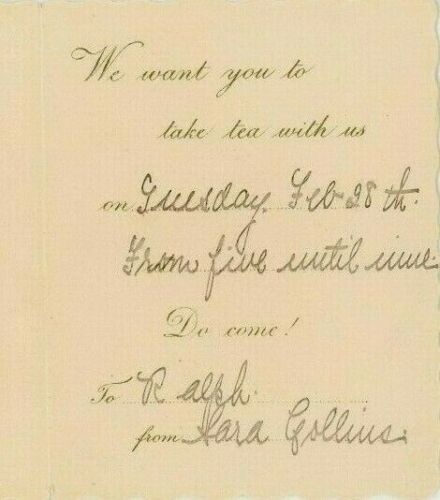 We want you to
take tea with us
on Tuesday. Feb 28 th.
From five until nine.
Do come!
To Ralph.
from Sara Collins.